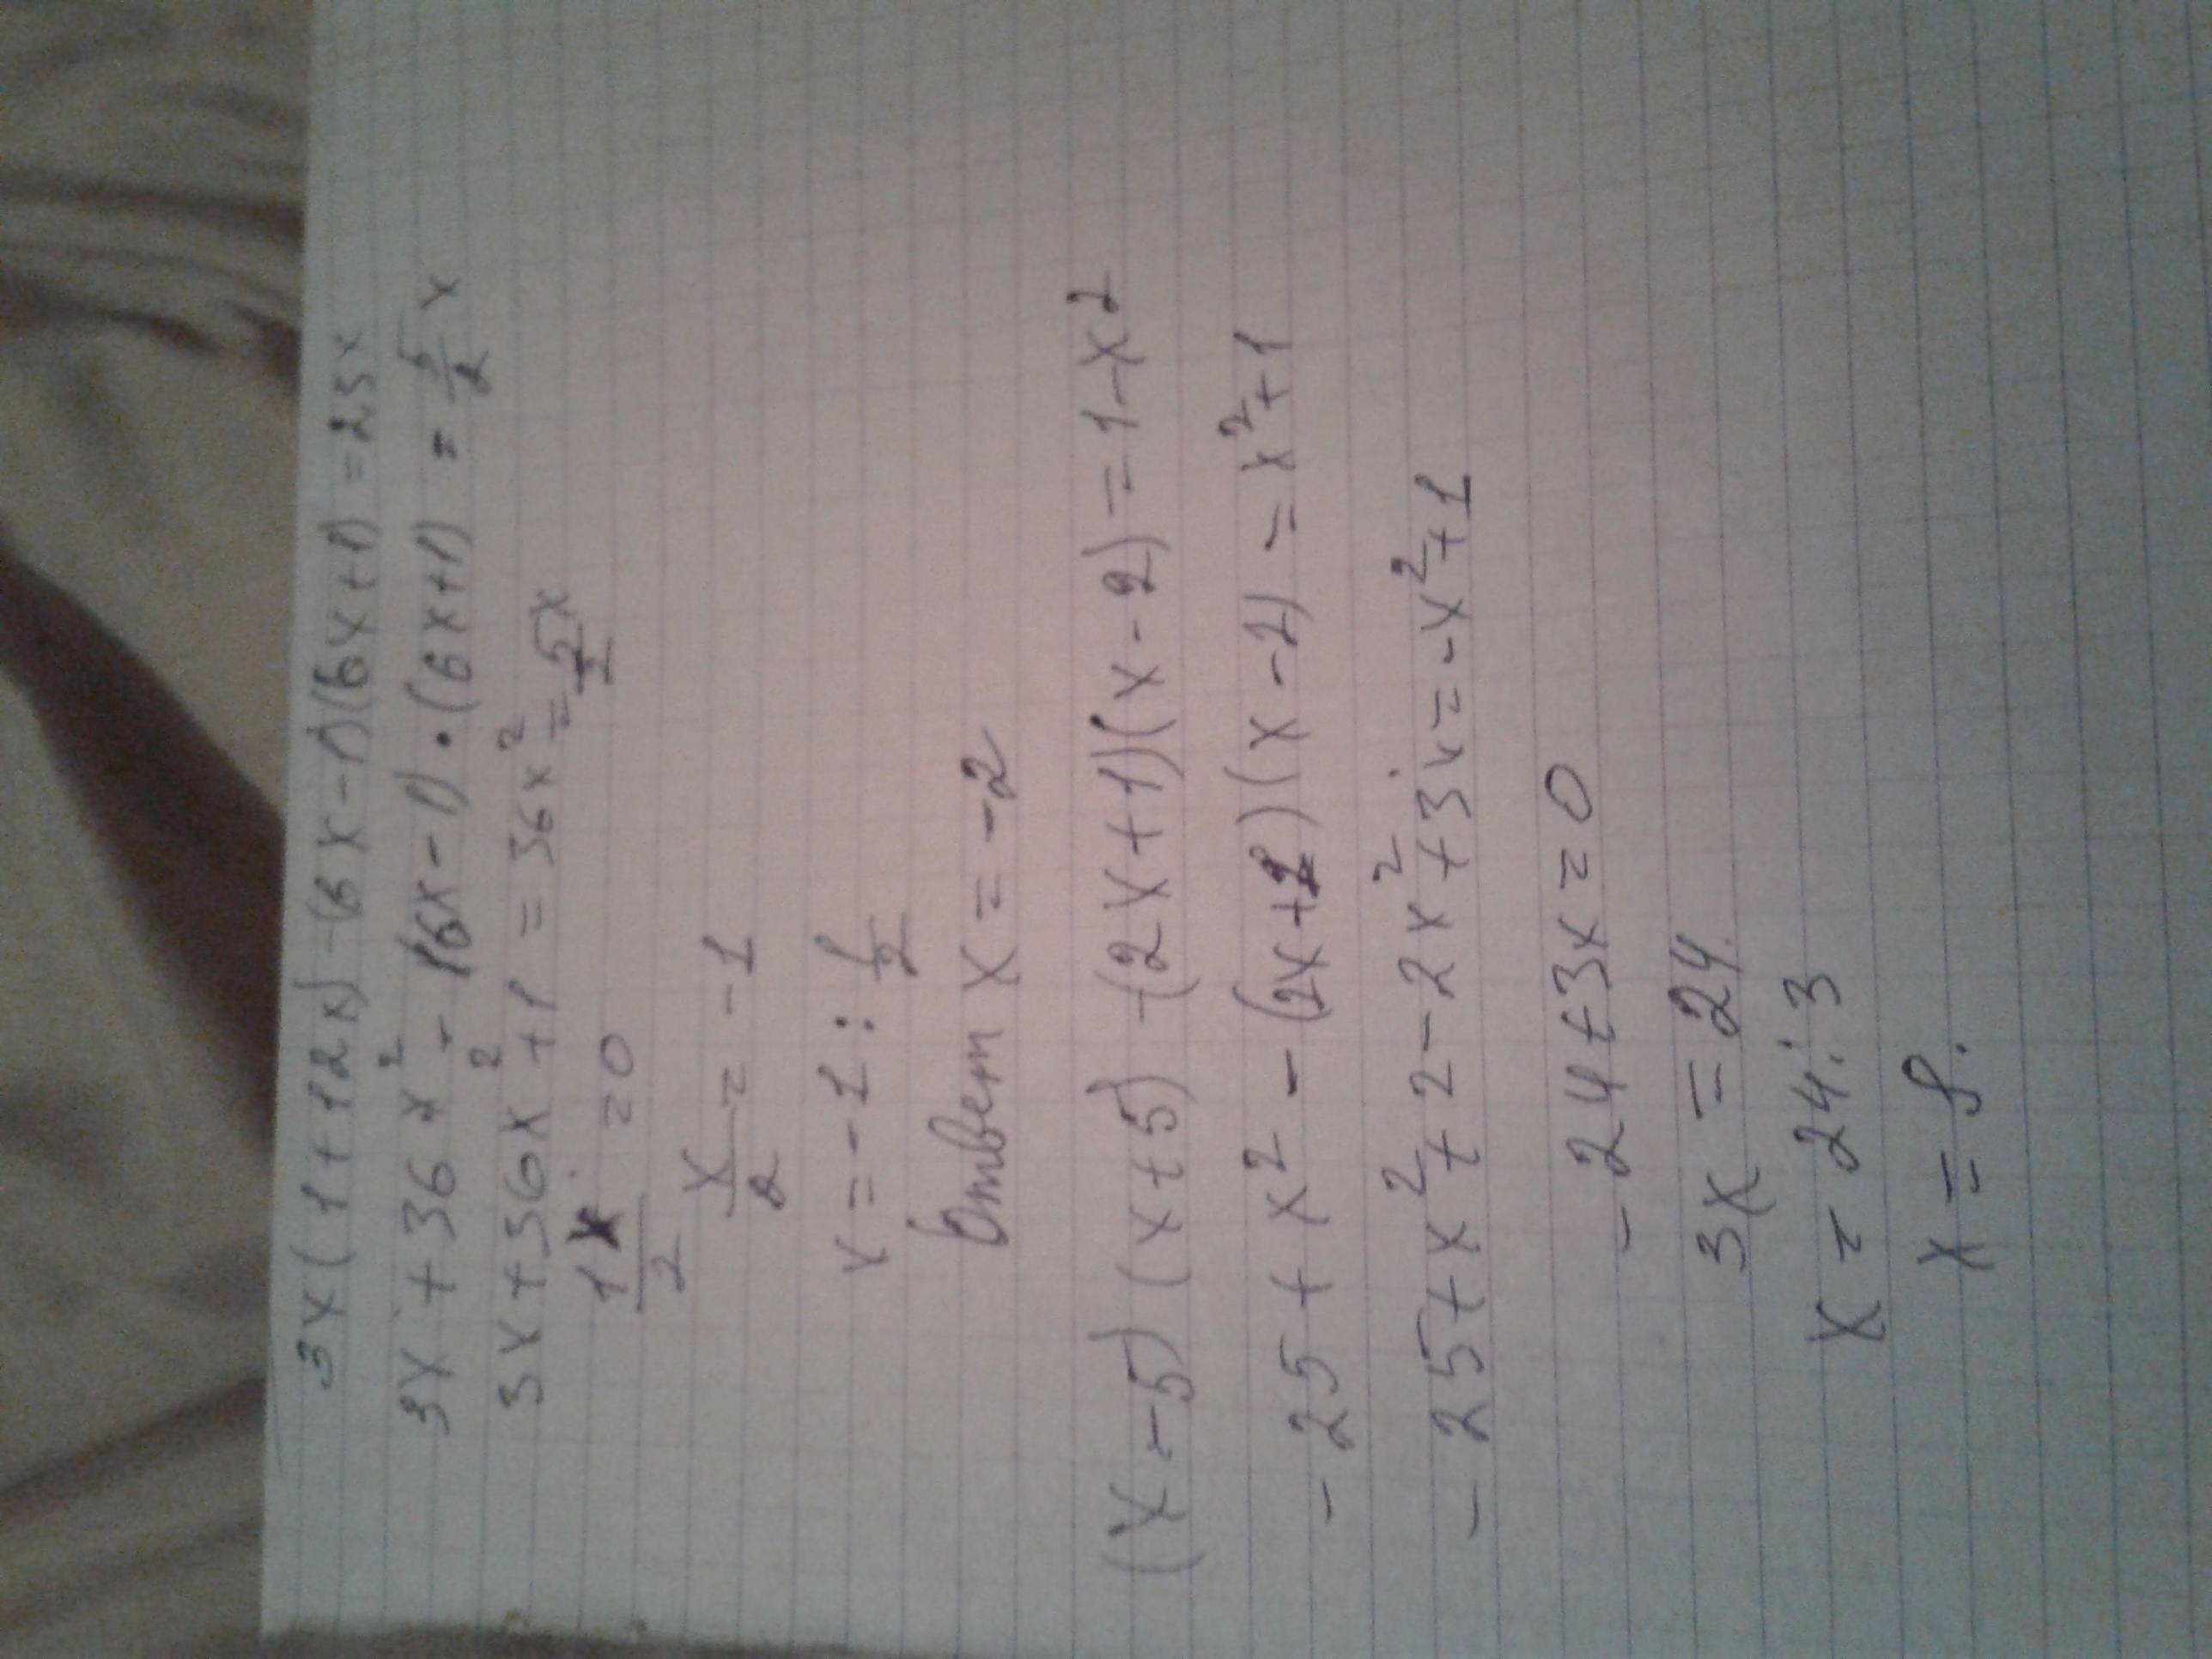 3x(1+12x)-(6x-1)(6x+1)=2,5x
3x+36x²-(6x-1)·(6x+1)=5/2x
3x+36x²+1=36x²=5x/2
1x/2=0
x/2=-1
x=-1:1/2
Ответ x=-2
(x-5)(x+5)-(2x+1)(x-2)=1-x²
-25+x²-(2x+1)(x-2)=x²+1
-25+x²+2-2x²+3x=-x²+1
-24+3x=0
3x=24
x=24:3
x=8.